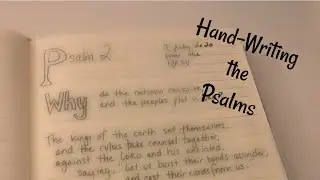 Hand-Writing
the
Psalms
Psalm 2
July 2020
from the
NRSV
Why do the nations conspire
and the peoples plot
The kings of the earth set themselves,
and the rulers take counsel together,
against the LORD and his anointed,
saying, Let us burst their bonds asunder,
and cast their cords from us.